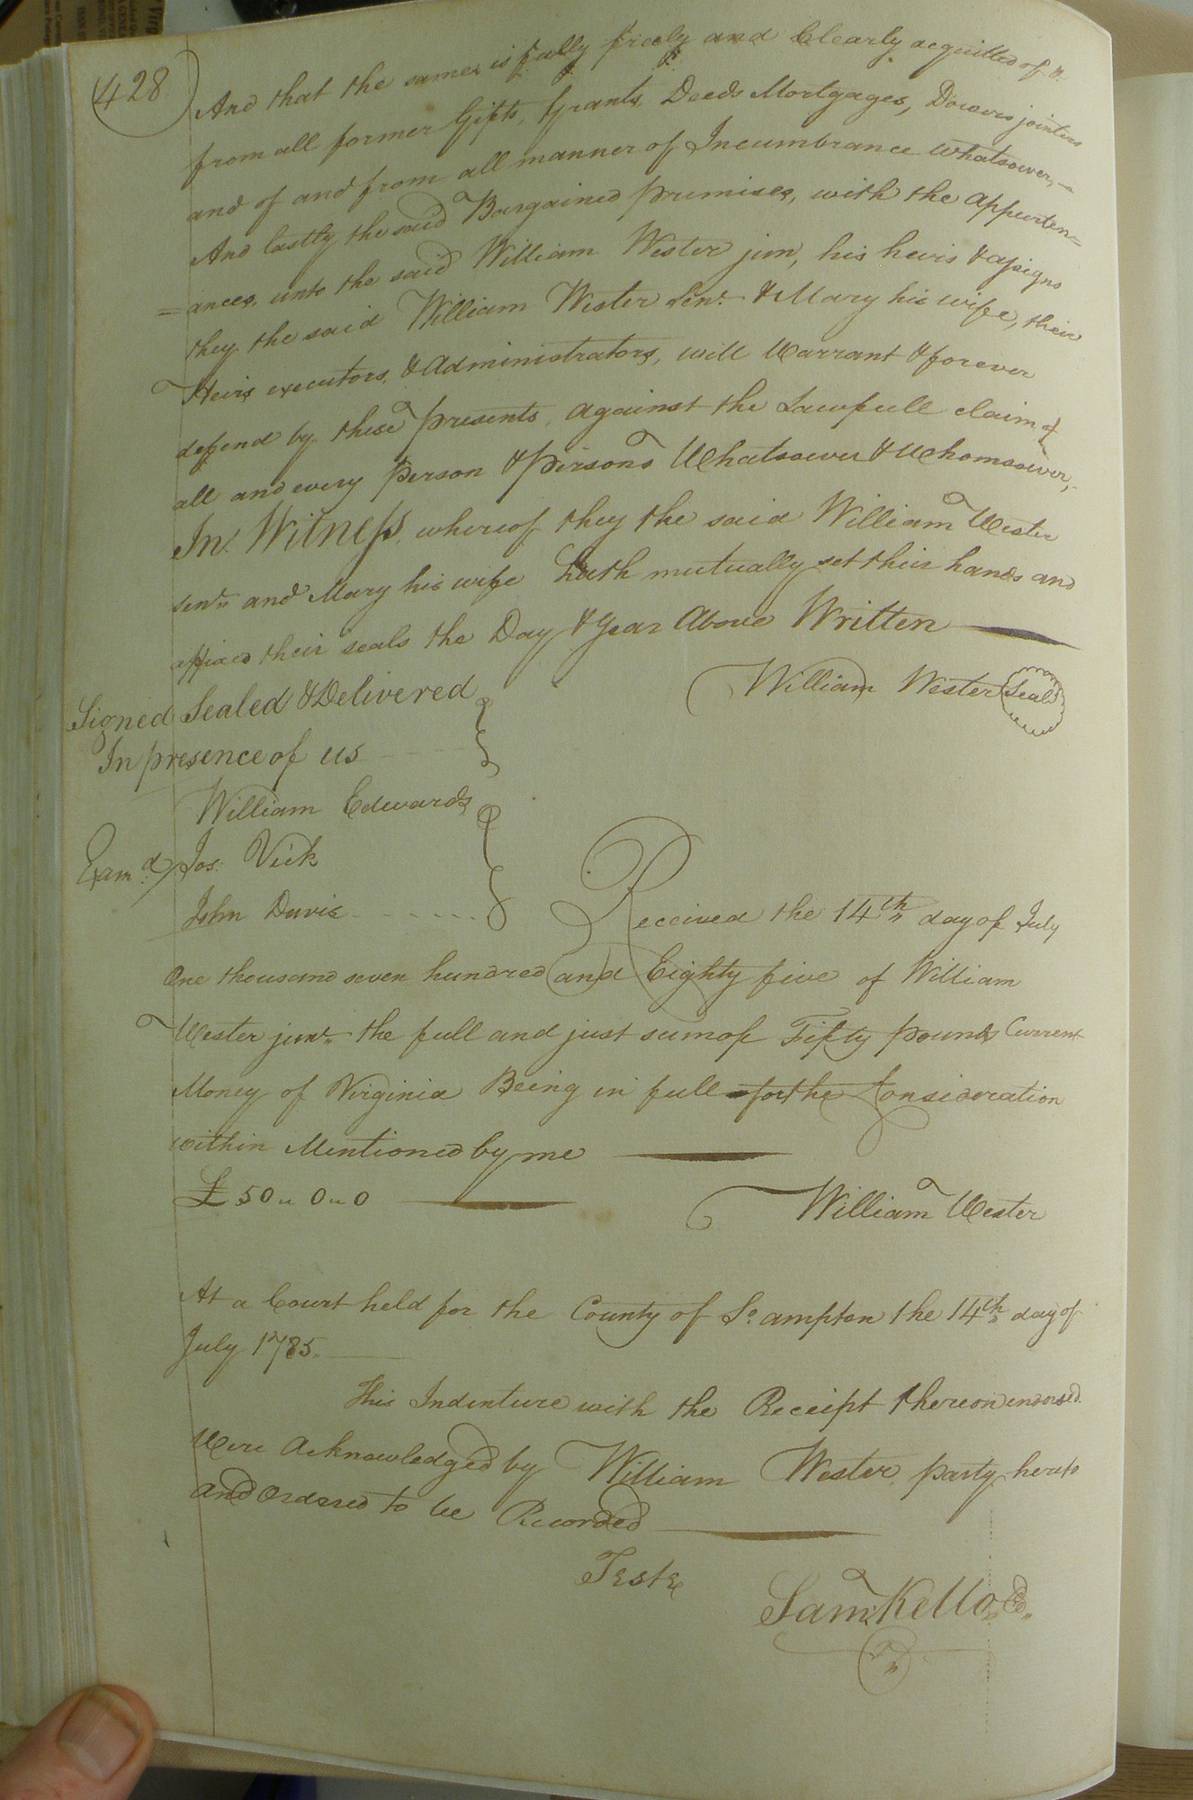 428
And that the same is fully freely and Clearly acquitted of &
from all former Gifts, Grants, Deeds Mortgages, Dowers jointers
and of and from all manner of Incumbrance whatsoever,
And lastly the said Bargained premises, with the appurten=
=ances, unto the said William Wester jun, his heirs & assigns
they the said William Wester Senr. & Mary his wife, their
Heirs executors, & Administrators, will Warrant & forever
defend by these presents, against the Lawfull claim of
all and every person & persons Whatsoever & Whomsoever,
In Witness, whereof they the said William Wester
senr. and Mary his wife hath mutually set their hands and
affixed their seals the Day & Year Above Written
William Wester Seal
Signed Sealed & Delivered
In presence of us
William Edwards
Exam.d Jos. Vick
John Davis
Received the 14th day of July
One thousand seven hundred and Eighty five of William
Wester junr. the full and just sum of Fifty pounds Current
Money of Virginia Being in full for the Consideration
within Mentioned by me
£ 50 " 0 " 0
William Wester
At a Court held for the County of So.ampton the 14th day of
July 1785.
This Indenture with the Receipt thereon endorsed
Were Acknowledged by William Wester party hereto
and Ordered to be Recorded
Teste
Sam Kello C.